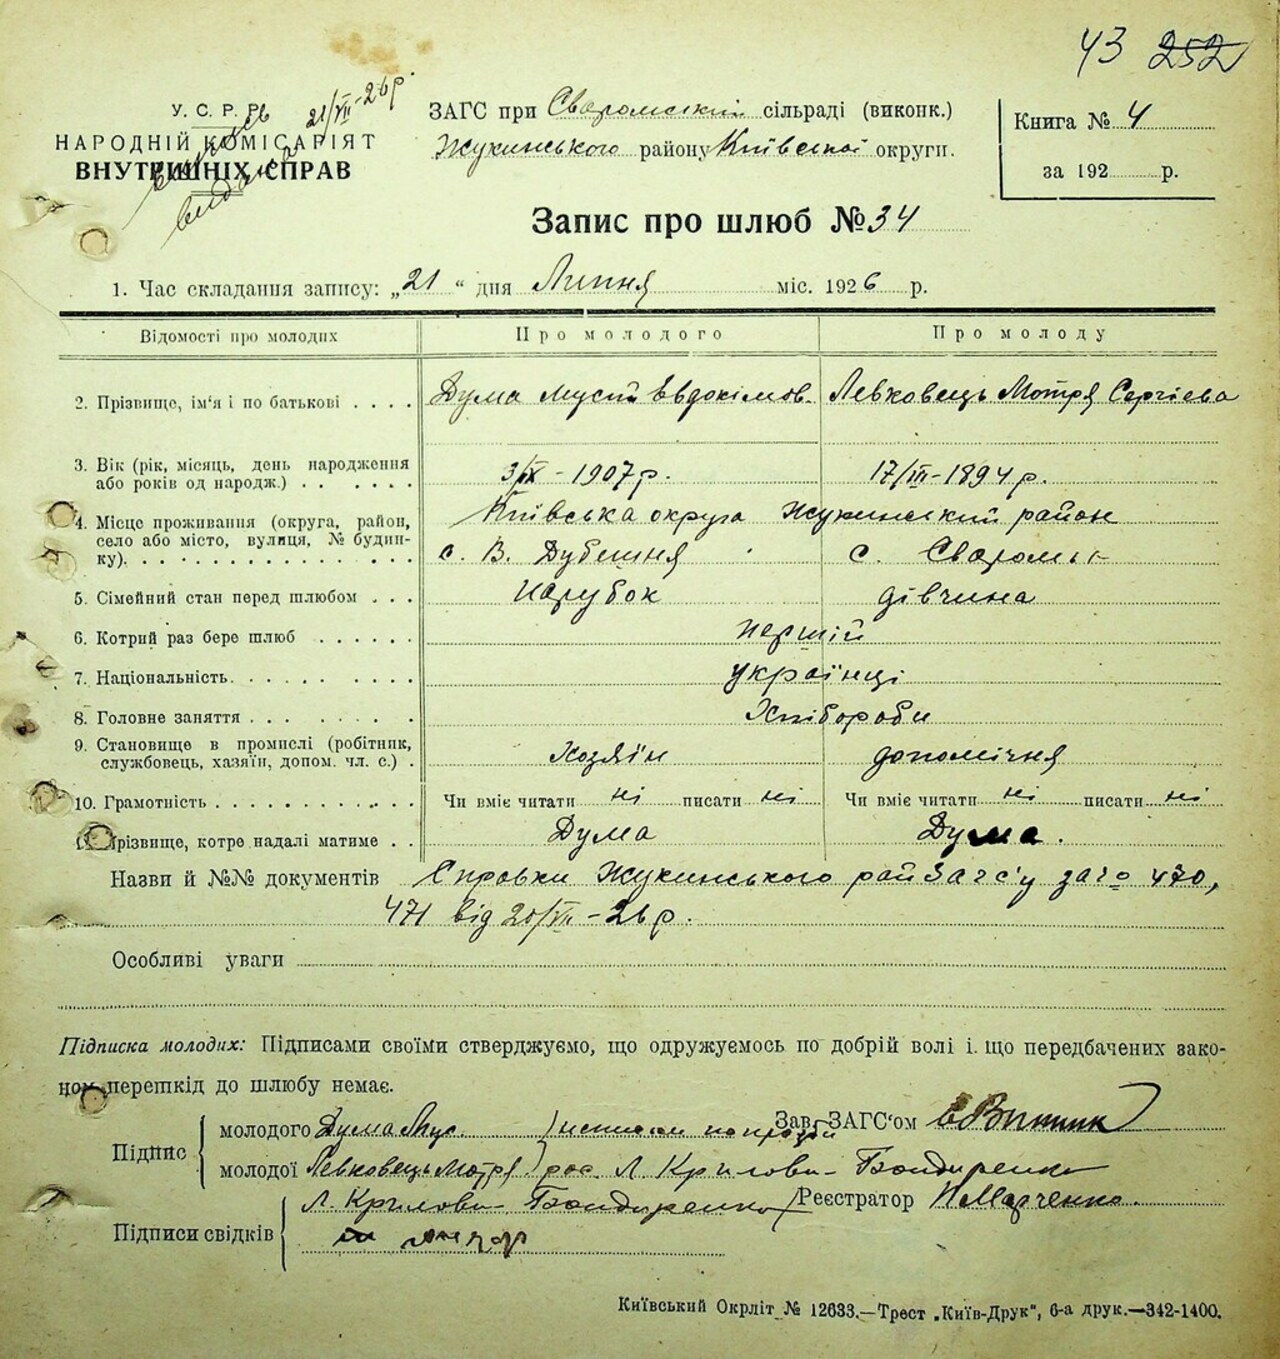 43 252
У. С. Р. Р.
НАРОДНІЙ КОМІСАРІЯТ
ВНУТРІШНІХ СПРАВ
21/VII-26р.
ЗАГС при Сваромський сільраді (виконк.)
Жукинського району Київської округи.
Книга № 4
за 192 р.
Запис про шлюб № 34
1. Час складання запису: „21“ дня Липня міс. 1926 р.
Відомості про молодих Про молодого Про молоду
2. Прізвище, ім'я і по батькові . . . . Дума Мусій Евдокімов. Левковець Мотря Сергієва
3. Вік (рік, місяць, день народження 3/IX - 1907 р. 17/III - 1894 р.
або років од народж.) . . . . . .
4. Місце проживання (округа, район, Київська округа Жукинський район
село або місто, вулиця, № будин- с. В. Дубешня с. Сваромьє
ку). . . . . . . . . . . . . . .
5. Сімейний стан перед шлюбом . . . парубок дівчина
6. Котрий раз бере шлюб . . . . . . першій
7. Національність. . . . . . . . . українці
8. Головне заняття . . . . . . . . Хлібороби
9. Становище в промислі (робітник, Хозяїн допомічня
службовець, хазяїн, допом. чл. с.) .
10. Грамотність . . . . . . . . . . . Чи вміє читати ні писати ні Чи вміє читати ні писати ні
11. Прізвище, котре надалі матиме . . Дума Дума.
Назви й №№ документів Справки Жукинського райЗагс'у за № 470,
471 від 20/VII - 26 р.
Особливі уваги
Підписка молодих: Підписами своїми стверджуємо, що одружуємось по добрій волі і що передбачених зако-
ном перешкід до шлюбу немає.
Зав. ЗАГС'ом
Підпис
молодого Дума Мус.
молодої Левковець Мотря Л. Крилова-Бондаренко
Підписи свідків
Л. Крилова-Бондаренко
Реєстратор Марченко
Київський Окрліт № 12633.—Трест „Київ-Друк“, 6-а друк.—342-1400.